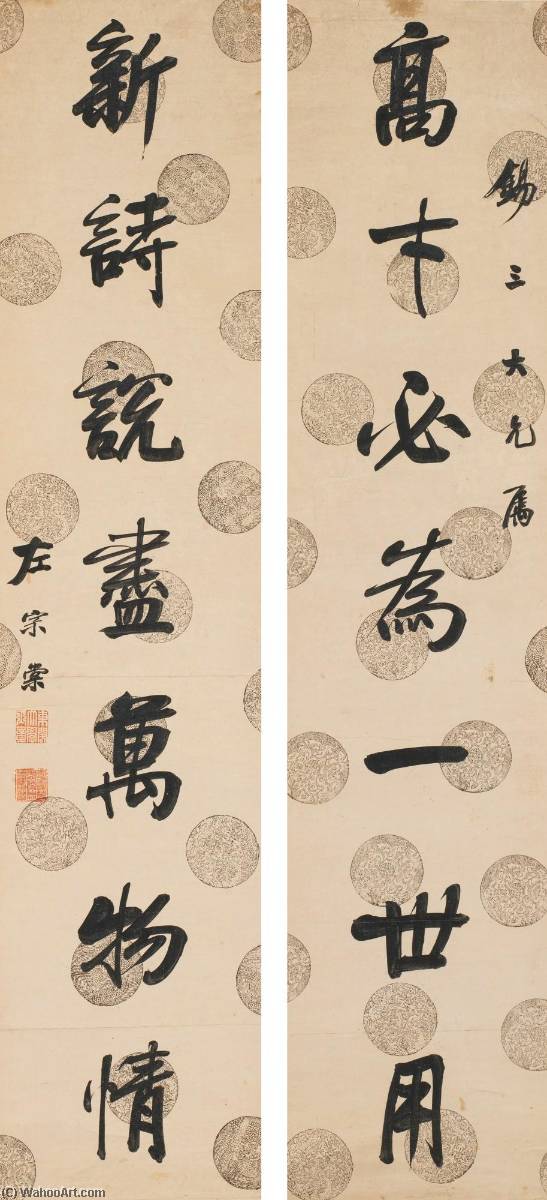 錫三大兄属
高才必為一世用
新詩說盡萬物情
左宗棠
(C) WahooArt.com